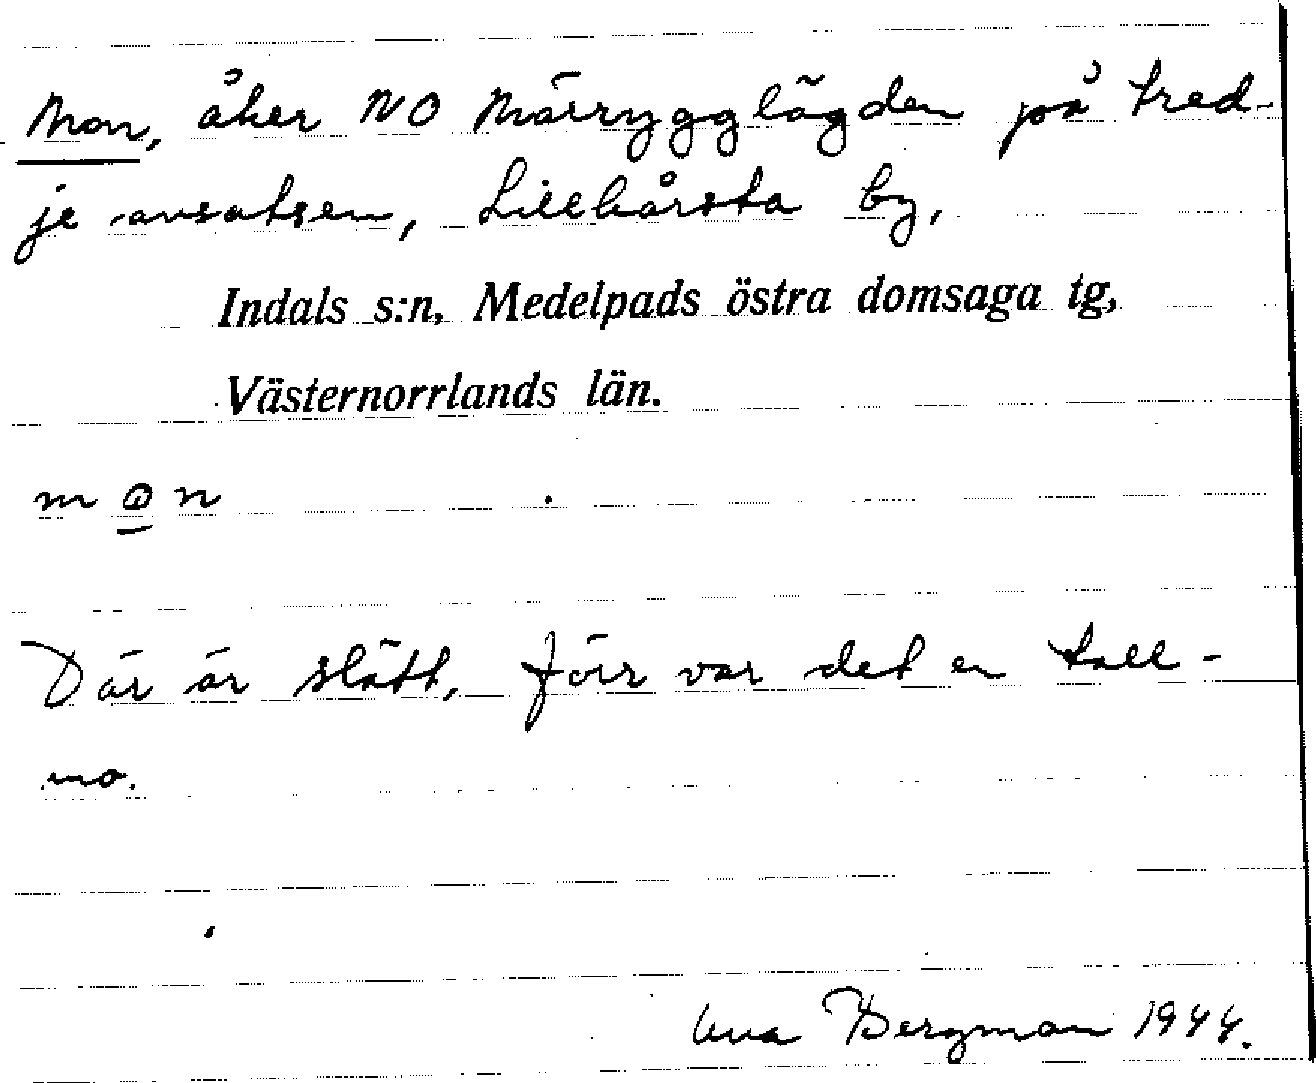 Mon, åker NO Märrygglägden på tred-
je avsatsen, Lillhårsta by,
Indals s:n, Medelpads östra domsaga tg,
Västernorrlands län.
m o n
Där är slätt, förr var det en tall-
mo.
Bergman 1944.